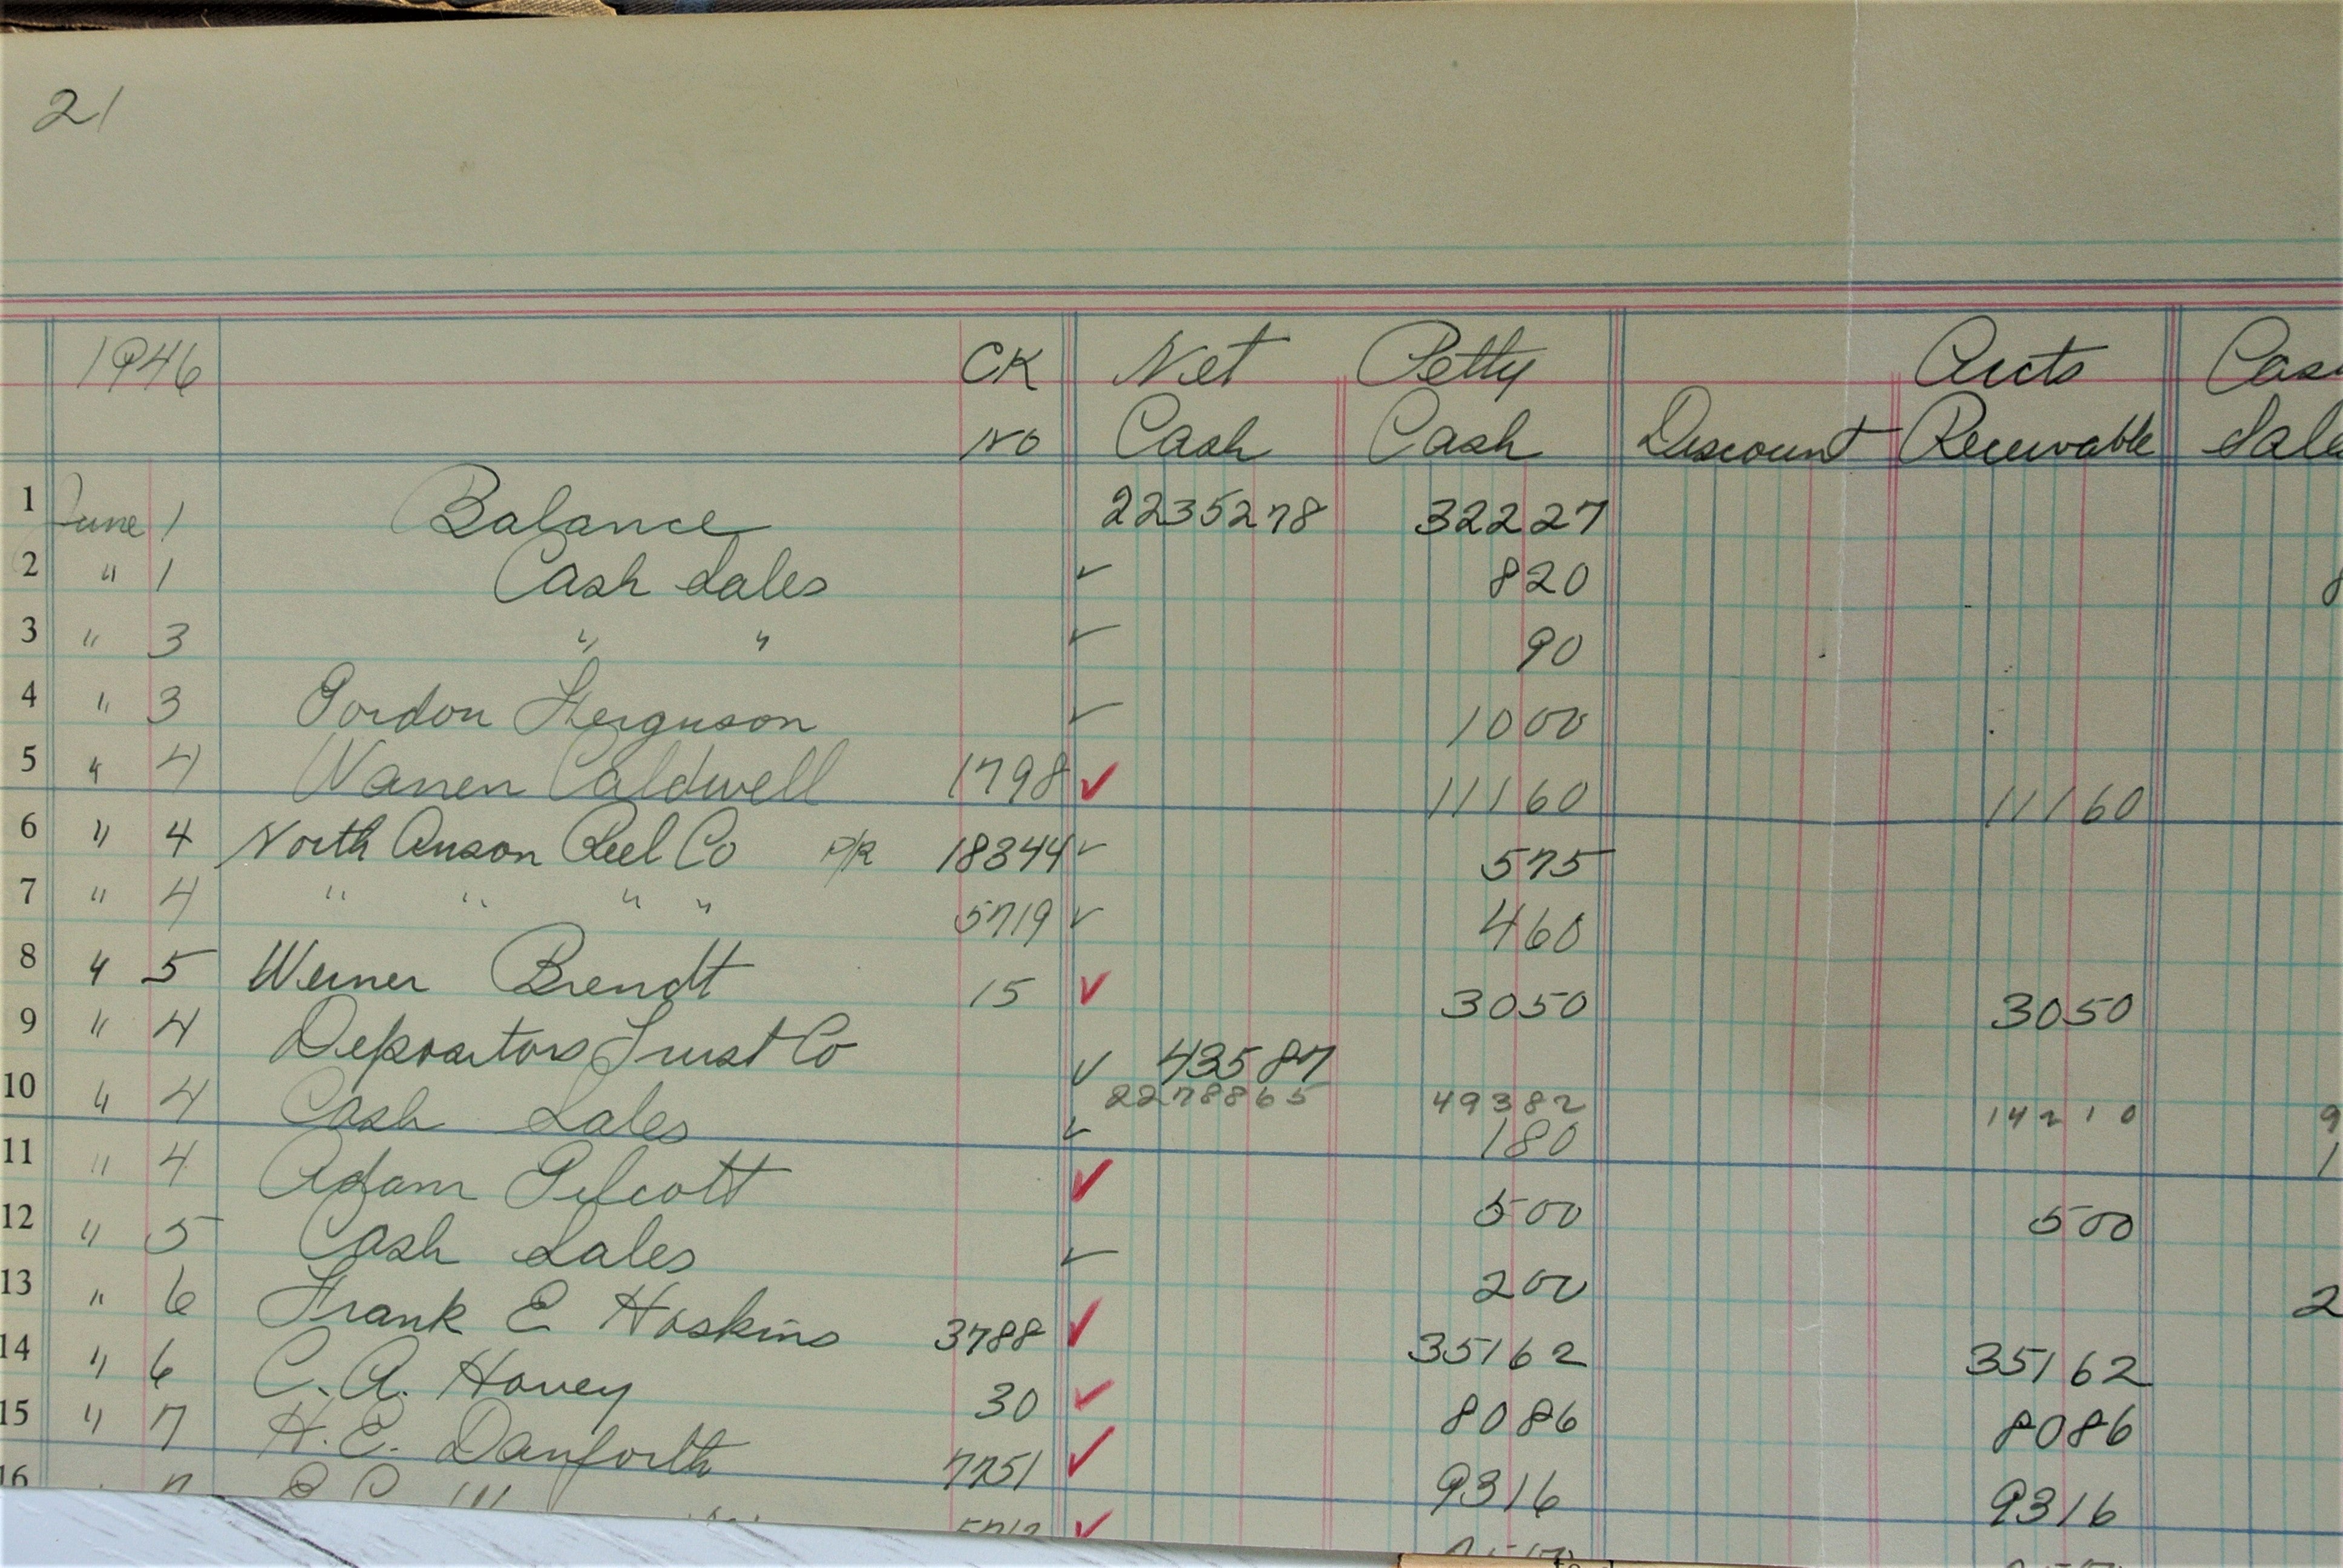 21
1946 CK Net Petty Accts Cas
NO Cash Cash Discount Receivable Sale
1 June 1 Balance 2235278 32227
2 " 1 Cash Sales ✓ 820 8
3 " 3 " " ✓ 90
4 " 3 Gordon Ferguson ✓ 1000
5 " 4 Warren Caldwell 1798 ✓ 11160 11160
6 " 4 North Anson Reel Co P/R 18344 ✓ 575
7 " 4 " " " " 5719 ✓ 460
8 " 5 Werner Brendt 15 ✓ 3050 3050
9 " 4 Depositors Trust Co ✓ 43587
2278865 49382 14210 9
10 " 4 Cash Sales ✓ 180 1
11 " 4 Adam ✓ 500 500
12 " 5 Cash Sales ✓ 200 2
13 " 6 Frank E Hoskins 3788 ✓ 35162 35162
14 " 6 C. A. Hovey 30 ✓ 8086 8086
15 " 7 H. E. Danforth 7751 ✓ 9316 9316
16